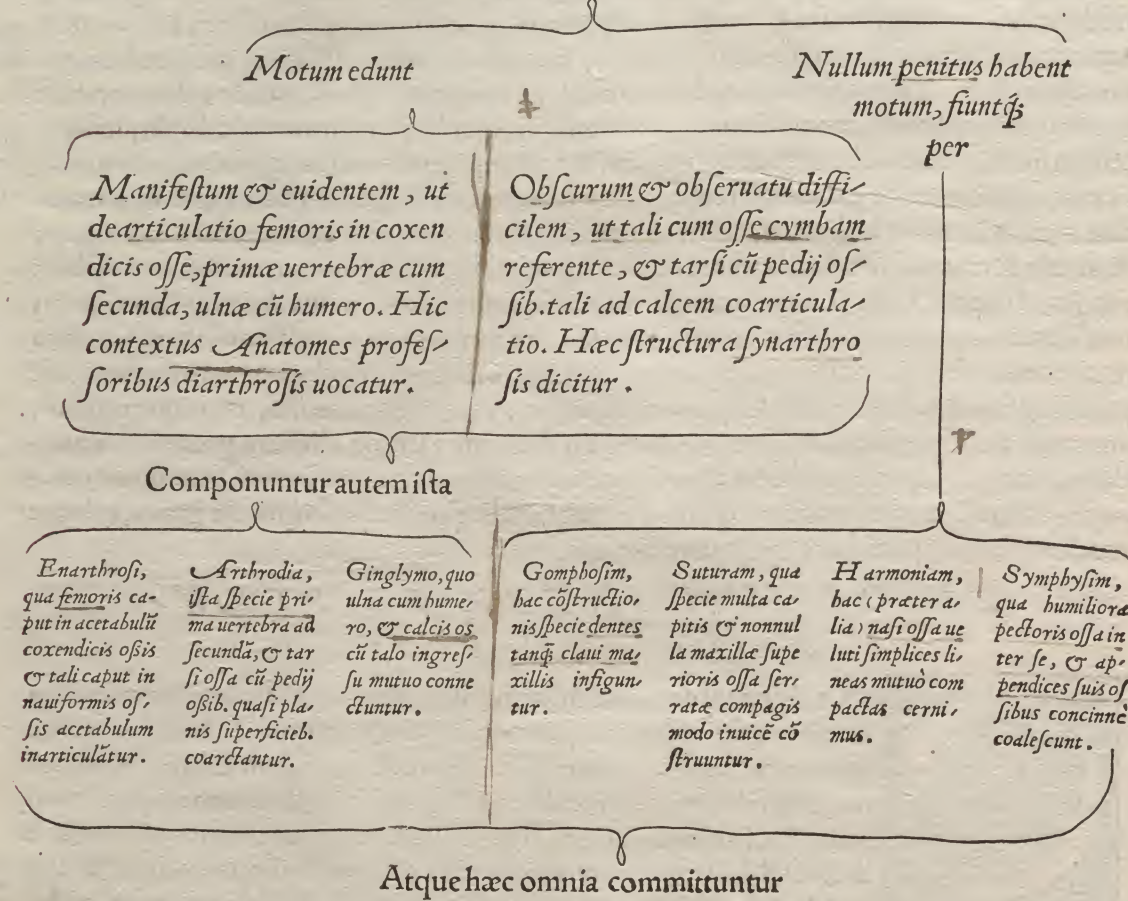 Motum edunt
Nullum penitus habent
motum, fiuntq́;
per
Manifeſtum & euidentem, ut
dearticulatio femoris in coxen
dicis oſſe, primæ uertebræ cum
ſecunda, ulnæ cũ humero. Hic
contextus Anatomes profeſ-
ſoribus diarthroſis uocatur.
Obſcurum & obſeruatu diffi-
cilem, ut tali cum oſſe cymbam
referente, & tarſi cũ pedij oſ-
ſib. tali ad calcem coarticula-
tio. Hæc ſtructura ſynarthro
ſis dicitur.
Componuntur autem iſta
Enarthroſi,
qua femoris ca-
put in acetabulũ
coxendicis oßis
& tali caput in
nauiformis oſ-
ſis acetabulum
inarticulãtur.
Arthrodia,
iſta ſpecie pri-
ma uertebra ad
ſecundã, & tar
ſi oſſa cũ pedij
oßib. quaſi pla-
nis ſuperficieb.
coarctantur.
Ginglymo, quo
ulna cum hume-
ro, & calcis os
cũ talo ingreſ-
ſu mutuo conne
ctuntur.
Gomphoſim,
hac cõſtructio-
nis ſpecie dentes
tanq̃ claui ma-
xillis infigun-
tur.
Suturam, qua
ſpecie multa ca-
pitis & nonnul
la maxillæ ſupe
rioris oſſa ſer-
ratæ compagis
modo inuicẽ cõ
ſtruuntur.
Harmoniam,
hac (præter a-
lia) naſi oſſa ue
luti ſimplices li-
neas mutuò com
pactas cerni-
mus.
Symphyſim,
qua humiliora
pectoris oſſa in
ter ſe, & ap-
pendices ſuis oſ
ſibus concinnè
coaleſcunt.
Atque hæc omnia committuntur